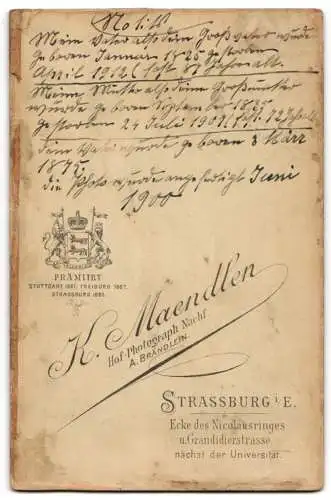 Notitz
Mein Vater also dein Großvater wurde
geboren Januar 1826 gestorben
April 1912 (fast 87 Jahre alt.
Meine Mutter also dein Großmutter
wurde geboren September 1835
gestorben 24 Juli 1907 (fast 72 Jahre alt
dein Vater wurde geboren 3 März
1875.
die Photo wurde angefertigt Juni
1900
PRÄMIIRT
STUTTGART 1881. FREIBURG 1887.
STRASSBURG 1885.
K. Maendlen
Hof-Photograph Nachf.
A. BRÄNDLEIN.
STRASSBURG i. E.
Ecke des Nicolausringes
u. Grandidierstrasse
nächst der Universität.